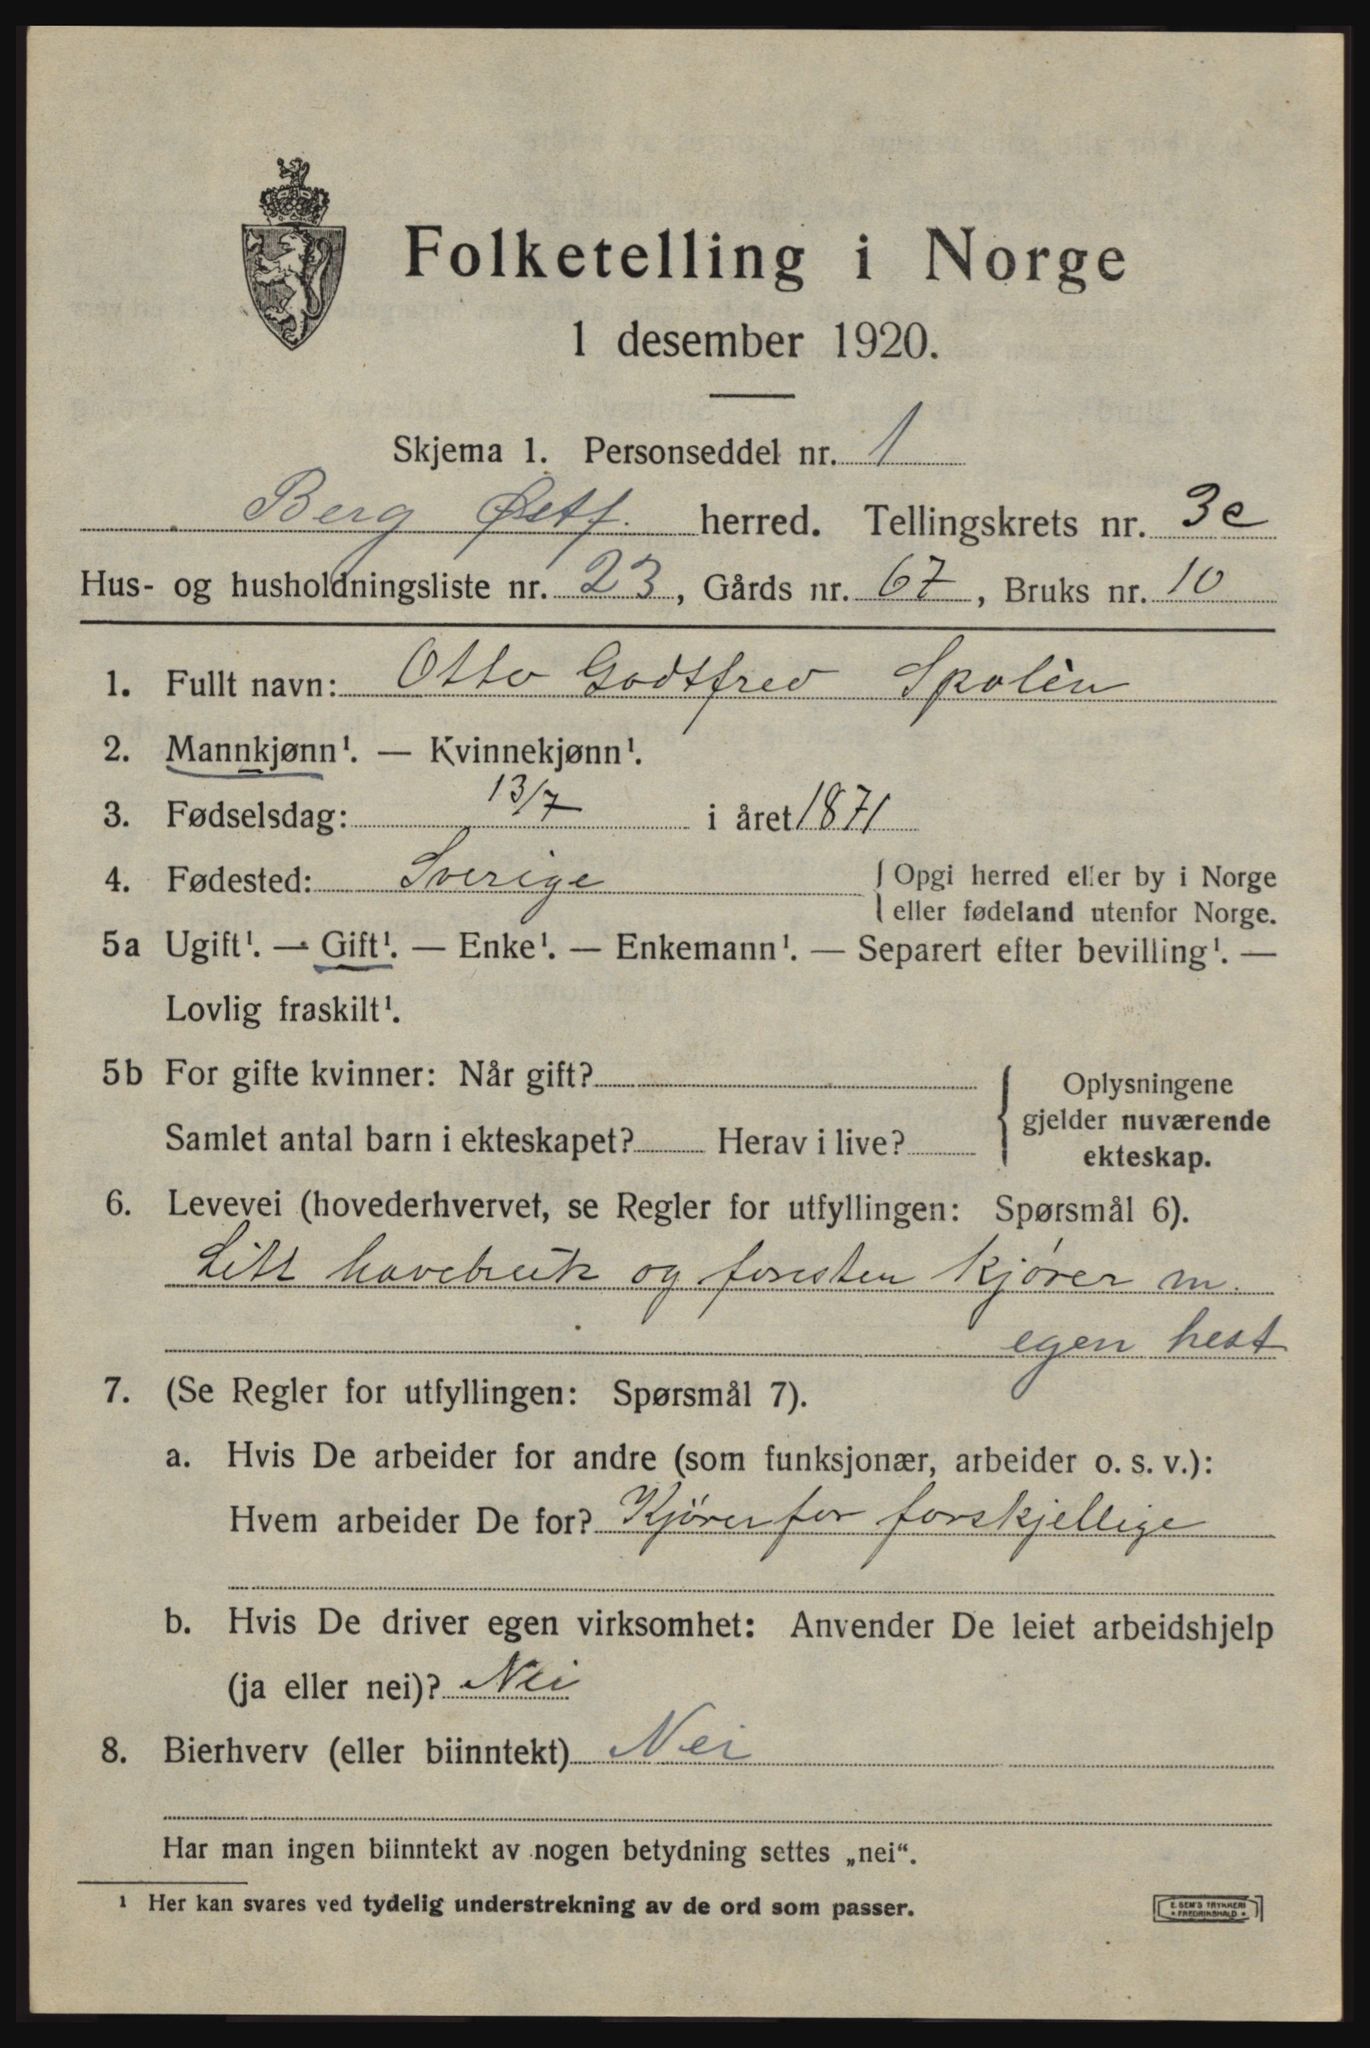 Folketelling i Norge
1 desember 1920.
Skjema 1. Personseddel nr. 1
Berg Østf. herred. Tellingskrets nr. 3c
Hus- og husholdningsliste nr. 23, Gårds nr. 67, Bruks nr. 10
1. Fullt navn: Otto Godtfred Spolén
2. Mannkjønn¹. — Kvinnekjønn¹.
3. Fødselsdag: 13/7 i året 1871
4. Fødested: Sverige { Opgi herred eller by i Norge
eller fødeland utenfor Norge.
5a Ugift¹. — Gift¹. — Enke¹. — Enkemann¹. — Separert efter bevilling¹. —
Lovlig fraskilt¹.
5b For gifte kvinner: Når gift?
Samlet antal barn i ekteskapet? Herav i live?
{ Oplysningene
gjelder nuværende
ekteskap.
6. Levevei (hovederhvervet, se Regler for utfyllingen: Spørsmål 6).
Litt havebruk og foresten kjører m.
egen hest
7. (Se Regler for utfyllingen: Spørsmål 7).
a. Hvis De arbeider for andre (som funksjonær, arbeider o. s. v.):
Hvem arbeider De for? Kjører for forskjellige
b. Hvis De driver egen virksomhet: Anvender De leiet arbeidshjelp
(ja eller nei)? Nei
8. Bierhverv (eller biinntekt) Nei
Har man ingen biinntekt av nogen betydning settes „nei“.
¹ Her kan svares ved tydelig understrekning av de ord som passer.
E. SEM'S TRYKKERI
FREDRIKSHALD